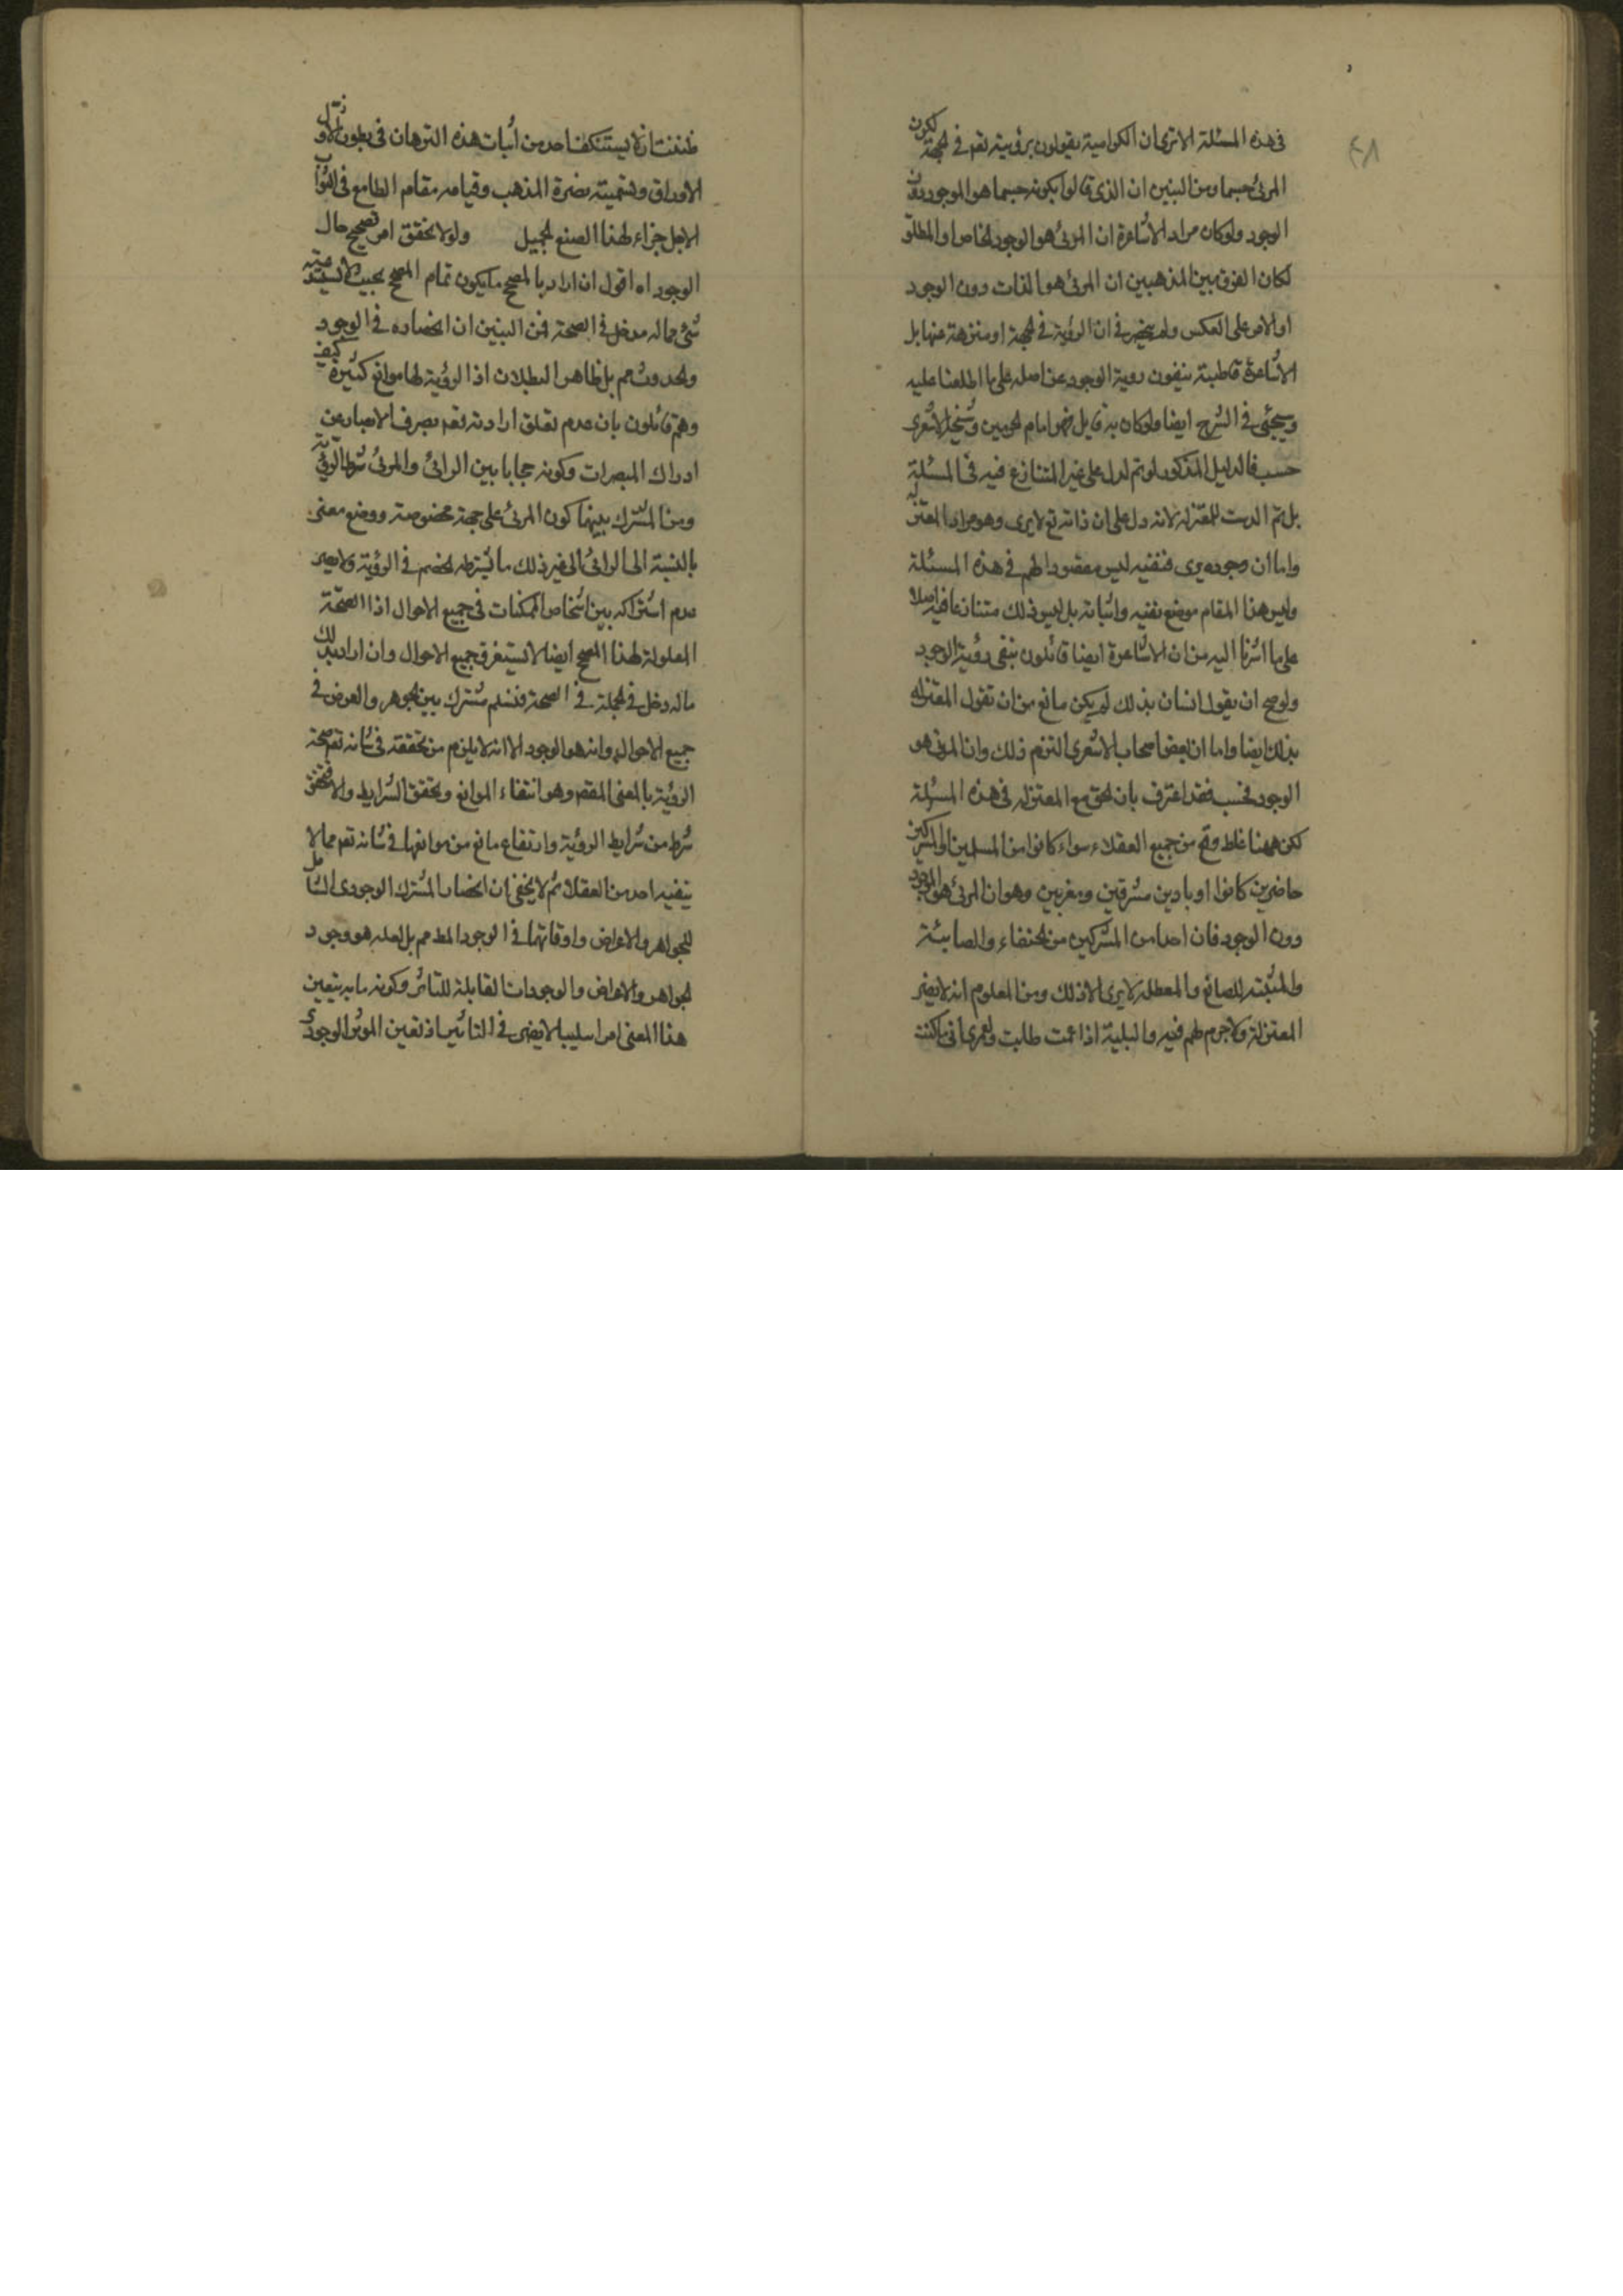 ٤٨
فى هذه المسئلة الا ترى ان الكرامية يقولون برؤيته تعم فى الجهة لكون
المرئ جسما ومن البين ان الذى قالوا بكونه جسما هو الموجود دون
الوجود ولو كان مراد الاشاعرة ان المرئ هو الوجود الخاص او المطلق
لكان الفرق بين المذهبين ان المرئ هو الذات دون الوجود
او الامر على العكس ولم ينحصر فى ان الرؤية فى الجهة او منزهة عنها بل
الاشاعرة قاطبة ينفون روية الوجود عن اصله على ما اطلعنا عليه
وسيجئ فى الشرح ايضا ولو كان به قايل فهو امام الحرمين وشيخه الاشعرى
حسب فالدليل المذكور لو تم لدل على غير المتنازع فيه فى المسئلة
بل تم الدست للمعتزله لانه دل على ان ذاته تع لا يرى وهو مراد المعتزله
واما ان وجوده يرى فنفيه ليس مقصودا لهم فى هذه المسئلة
وليس هذا المقام موضع نفيه واثباته بل ليس ذلك متنازعا فيه اصلا
على ما اشرنا اليه من ان الاشاعرة ايضا قائلون بنفى رؤية الوجود
ولو صح ان يقول انسان بذلك لم يكن مانع من ان تقول المعتزله
بذلك ايضا واما ان بعض اصحاب الاشعرى التزم ذلك وان المرئى هو
الوجود فحسب فقد اعترف بان الحق مع المعتزله فى هذه المسئلة
لكن ههنا غلط وقع من جميع العقلاء سواء كانوا من المسلمين او المشركين
حاضرين كانوا او بادين مشرقين ومغربين وهو ان المرئ هو الموجود
دون الوجود فان احدا من المشركين من الحنفاء والصابئة
والمثبته للصانع والمعطله لا يرى الا ذلك ومن المعلوم انه لا يضر
المعتزلة ولا جرم لهم فيه والبلية اذا عمت طابت ولعمرى انى ما كنت
ظننت ان لا يستنكف احد من اثبات هذه الترهات فى بطون
الاوراق وتسميته نصرة المذهب وقيامه مقام الطامع فى الثواب
الاجل جزاء لهذا الصنع الجميل ولولا تحقق امر تصحيح حال
الوجود اه اقول ان اراد بالمصحح ما يكون تمام المصحح بحيث لا يشذ عنه
شئ مما له مدخل فى الصحة فمن البين ان انحصاره فى الوجود
والحدوث مم بل ظاهر البطلان اذا الرؤية لها موانع كثيرة كيف
وهم قائلون بان عدم تعلق ارادته تعم بصرف الابصار عن
ادراك المبصرات وكونه حجابا بين الرائى والمرئ شرط الرؤية
ومن المشترك بينهما كون المرئ على جهة مخصوصة ووضع معين
بالنسبة الى الرائى الى غير ذلك ما يشترطه الخصم فى الرؤية ولا يضر
عدم اشتراكه بين اشخاص الممكنات فى جميع الاحوال اذا الصحة
المعلولة لهذا المصحح ايضا لا تستغرق جميع الاحوال وان اراد بذلك
ما له دخل فى الجملة فى الصحة فنسلم مشترك بين الجوهر والعرض فى
جميع الاحوال وانه هو الوجود الا انه لا يلزم من تحققه فى شانه تعم صحة
الرؤية بالمعنى المقصم وهو انتفاء الموانع وتحقق الشرايط والا فتحقق
شرط من شرايط الرؤية وارتفاع مانع من موانعها فى شانه تعم مما لا
ينفيه احد من العقلا ثم لا يخفى ان انحصار المشترك الوجودى الشامل
للجواهر والاعراض واوقاتها فى الوجود المط مم بل لعله هو وجود
الجواهر والاعراض والوجودات القابلة للتاثر وكونه ما به يتعين
هذا المعنى امرا سلبيا لا يضر فى التاثير اذ تعين الموثر الوجودى